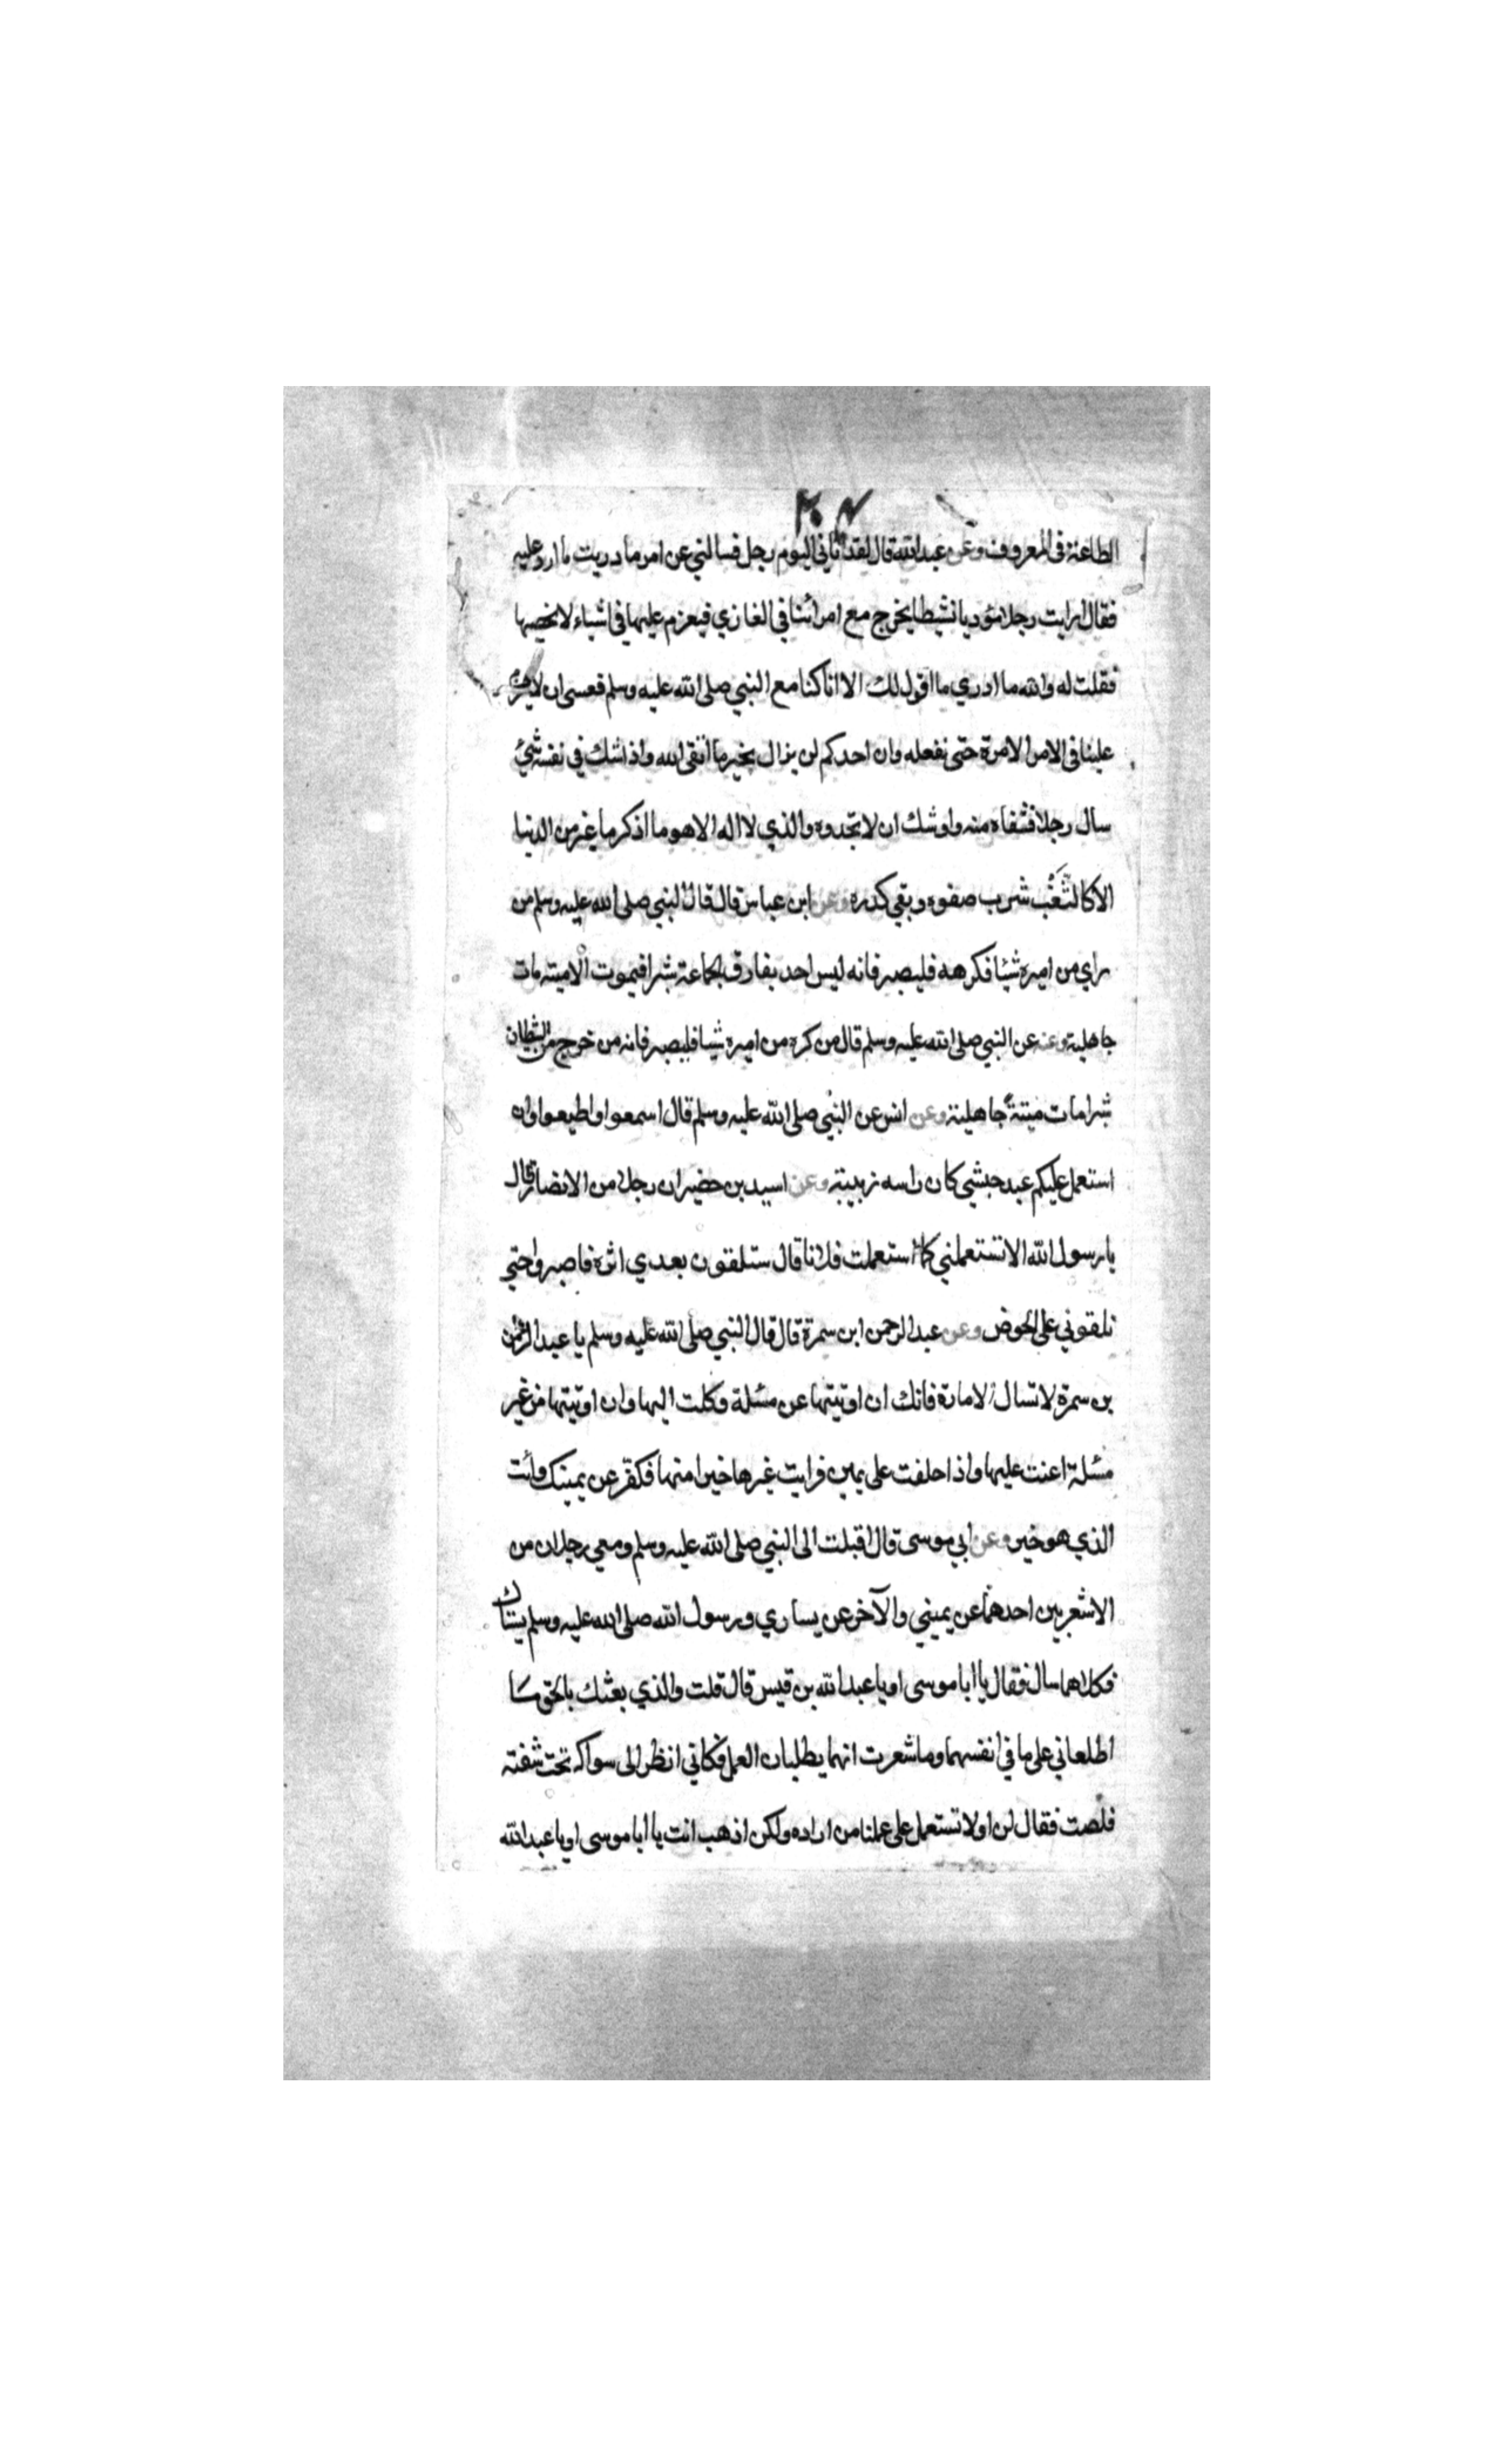 الطاعة فى المعروف وعن عبدالله قال لقد اتاني اليوم رجل فسالني عن امر ما دريت ما ارد عليه
فقال ارايت رجلا مؤديا نشيطا يخرج مع امرائنا في الغازي فيعزم عليها في اشياء لا نحصيها
فقلت له والله ما ادري ما اقول لك الا انا كنا مع النبي صلى الله عليه وسلم فعسى ان لا يعزم
علينا فى الامر الا مرة حتى نفعله وان احدكم لن يزال بخير ما اتقى الله واذا شك في نفسه شئ
سال رجلا فشفاه منه واوشك ان لا تجدوه والذي لا اله الا هو ما اذكر ما غبر من الدنيا
الا كالثَّغَب شرب صفوه وبقي كدره وعن ابن عباس قال قال النبي صلى الله عليه وسلم من
راي من اميره شيئا فكرهه فليصبر فانه ليس احد يفارق الجماعة شبرا فيموت الا ميتة مات
جاهلية وعنه عن النبي صلى الله عليه وسلم قال من كره من اميره شيئا فليصبر فانه من خرج من السلطان
شبرا مات ميتةً جاهلية وعن انس عن النبي صلى الله عليه وسلم قال اسمعوا واطيعوا وان
استعمل عليكم عبد حبشي كان راسه زبيبة وعن اسيد بن حضير ان رجلا من الانصار قال
يا رسول الله الا تستعملني كما استعملت فلانا قال ستلقون بعدي اثرة فاصبروا حتى
تلقوني على الحوض وعن عبد الرحمن ابن سمرة قال قال النبي صلى الله عليه وسلم يا عبد الرحمن
بن سمرة لا تسال الامارة فانك ان اوتيتها عن مسئلة وكلت اليها وان اوتيتها من غير
مسئلة اعنت عليها واذا حلفت على يمين فرايت غيرها خيرا منها فكفر عن يمينك وائت
الذي هو خير وعن ابي موسى قال اقبلت الى النبي صلى الله عليه وسلم ومعي رجلان من
الاشعريين احدهما عن يميني والآخر عن يساري ورسول الله صلى الله عليه وسلم يستاك
فكلاهما سال فقال يا ابا موسى او يا عبد الله بن قيس قال قلت والذي بعثك بالحق ما
اطلعاني على ما في انفسهما وما شعرت انهما يطلبان العمل فكاني انظر الى سواكه تحت شفته
قلصت فقال لن او لا تستعمل على عملنا من اراده ولكن اذهب انت يا ابا موسى او يا عبد الله